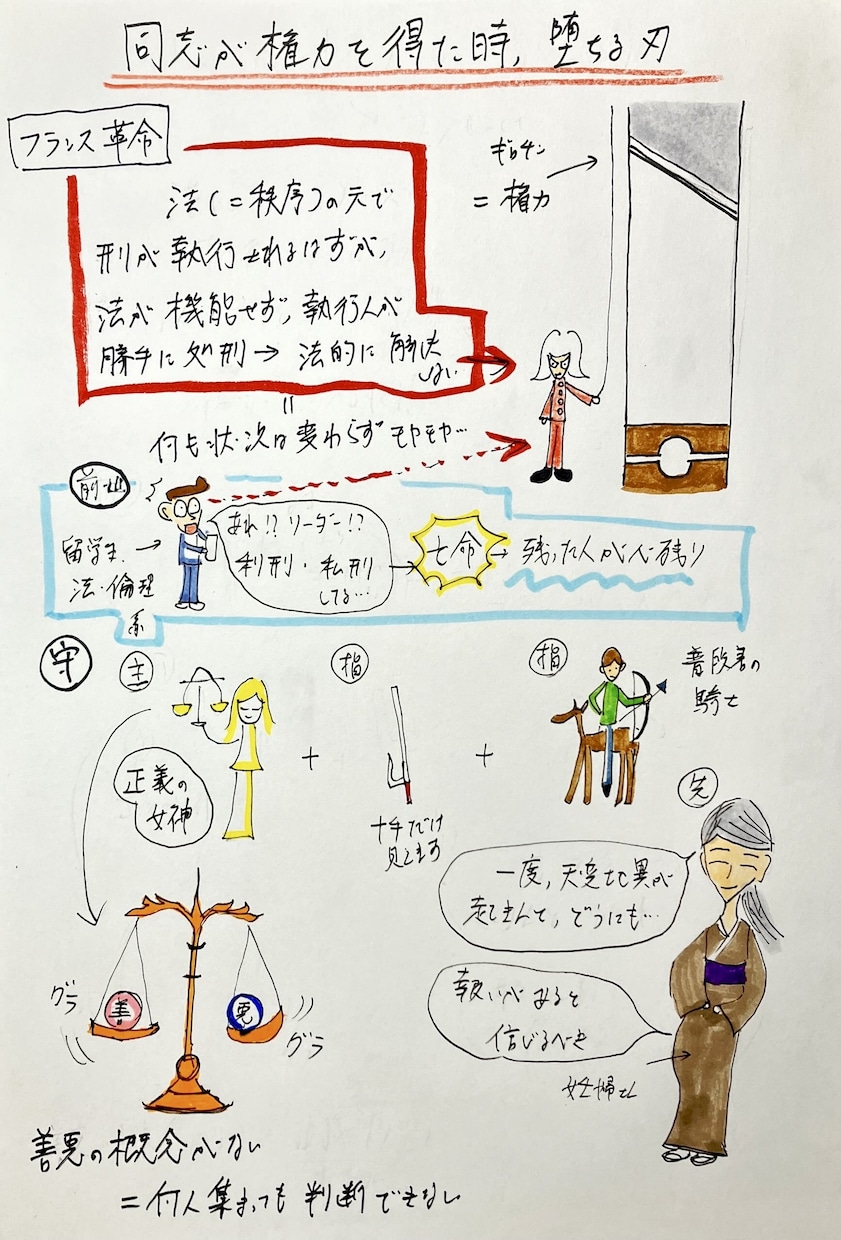 同志が権力を得た時、堕ちる刃
フランス革命
法(=秩序)の元で
刑が執行されるはずが、
法が機能せず、執行人が
勝手に処刑→法的に解決
しない
=
何も状況は変わらずモヤモヤ…
ギロチン
=権力
前世
留学生
法・倫理
系
あれ!?リーダー!?
私刑・私刑
してる…
亡命
残った人が心残り
守
主
指
指
正義の
女神
+
+
十手だけ
見えます
普段着の
騎士
先
一度、天変地異が
起きんと、どうにも…
報いがあると
信じるべき
妊婦さん
グラ
善
悪
グラ
善悪の概念がない
=何人集まっても判断できない